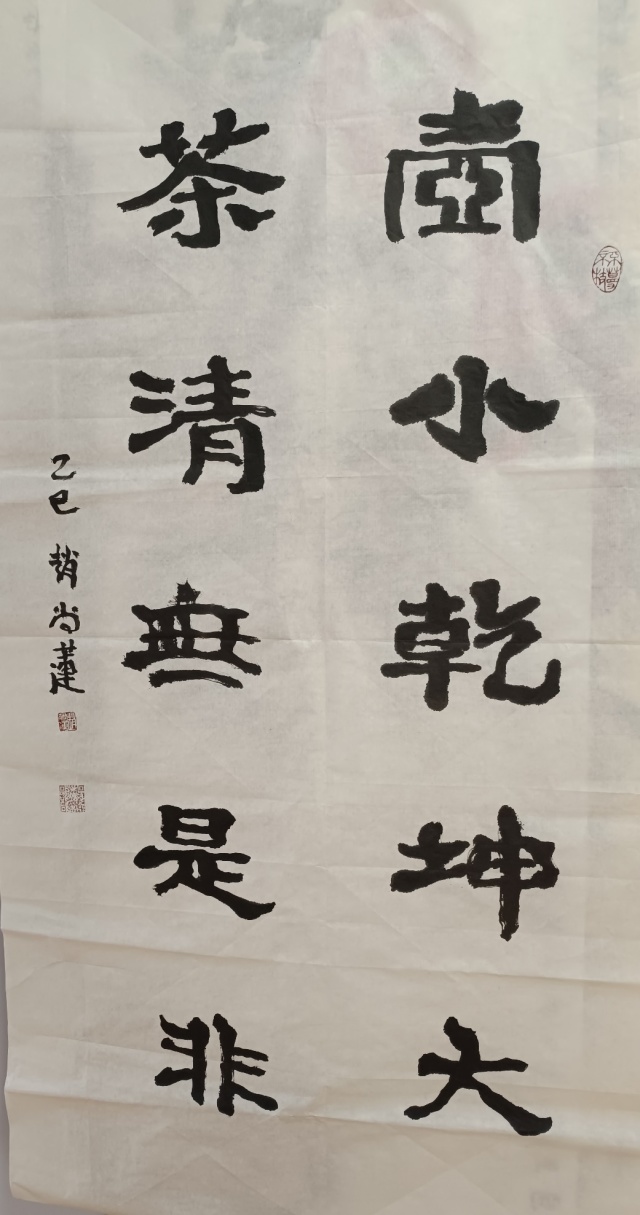 壺小乾坤大
茶清無是非
乙巳 趙尚蓮